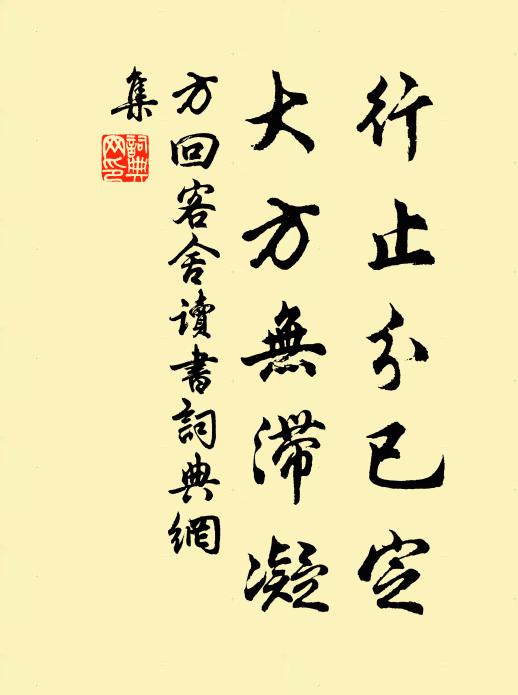 行止分已定
大方無滯凝
方回客舍讀書詞典網
集
詞典網印